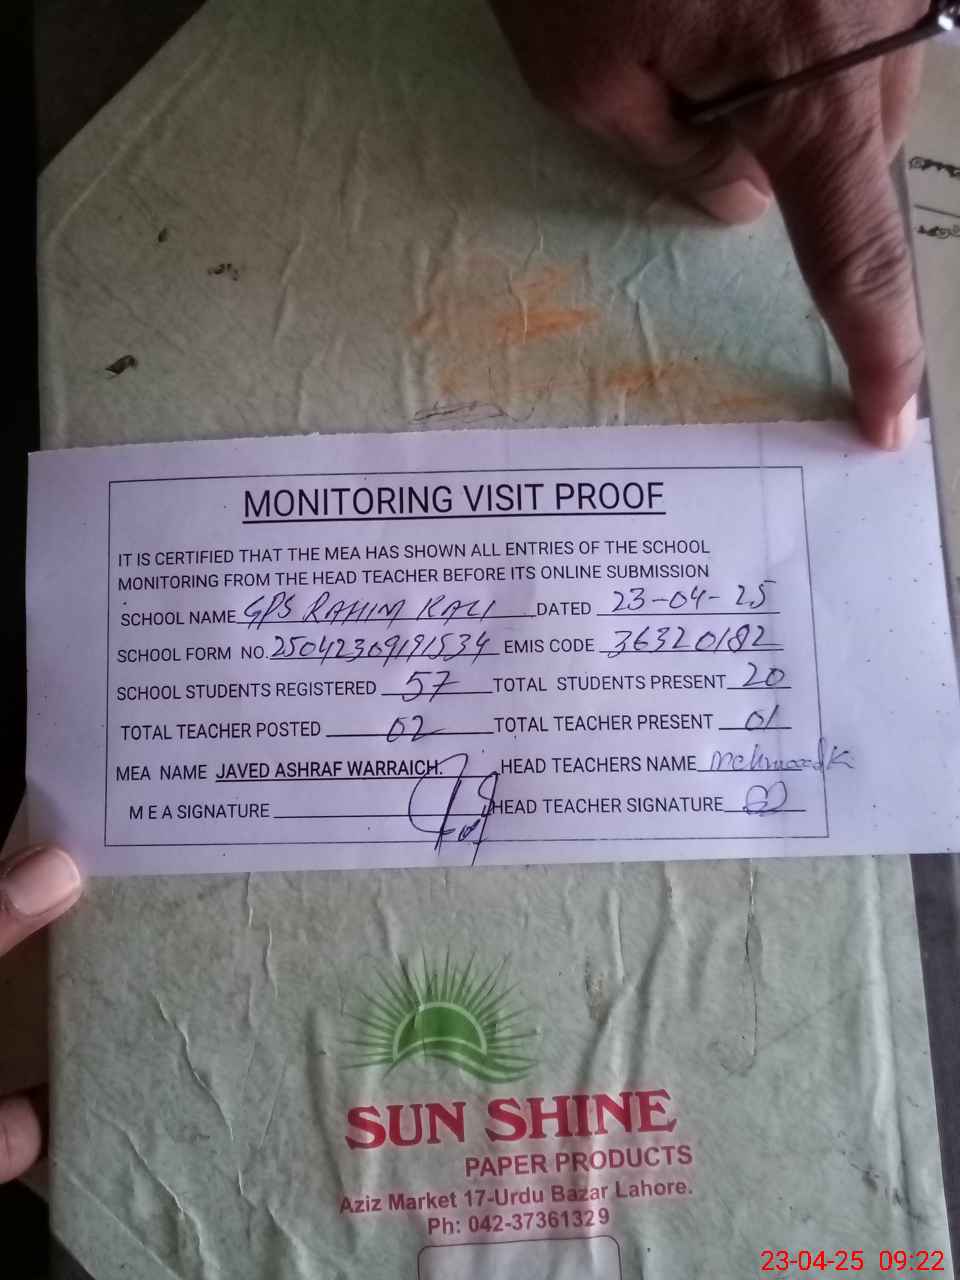 MONITORING VISIT PROOF
IT IS CERTIFIED THAT THE MEA HAS SHOWN ALL ENTRIES OF THE SCHOOL
MONITORING FROM THE HEAD TEACHER BEFORE ITS ONLINE SUBMISSION
SCHOOL NAME GPS RAHIM KALI DATED 23-04-25
SCHOOL FORM NO. 25042309191534 EMIS CODE 36320182
SCHOOL STUDENTS REGISTERED 57 TOTAL STUDENTS PRESENT 20
TOTAL TEACHER POSTED 02 TOTAL TEACHER PRESENT 01
MEA NAME JAVED ASHRAF WARRAICH. HEAD TEACHERS NAME Mehmood K
M E A SIGNATURE HEAD TEACHER SIGNATURE
SUN SHINE
PAPER PRODUCTS
Aziz Market 17-Urdu Bazar Lahore.
Ph: 042-37361329
23-04-25 09:22